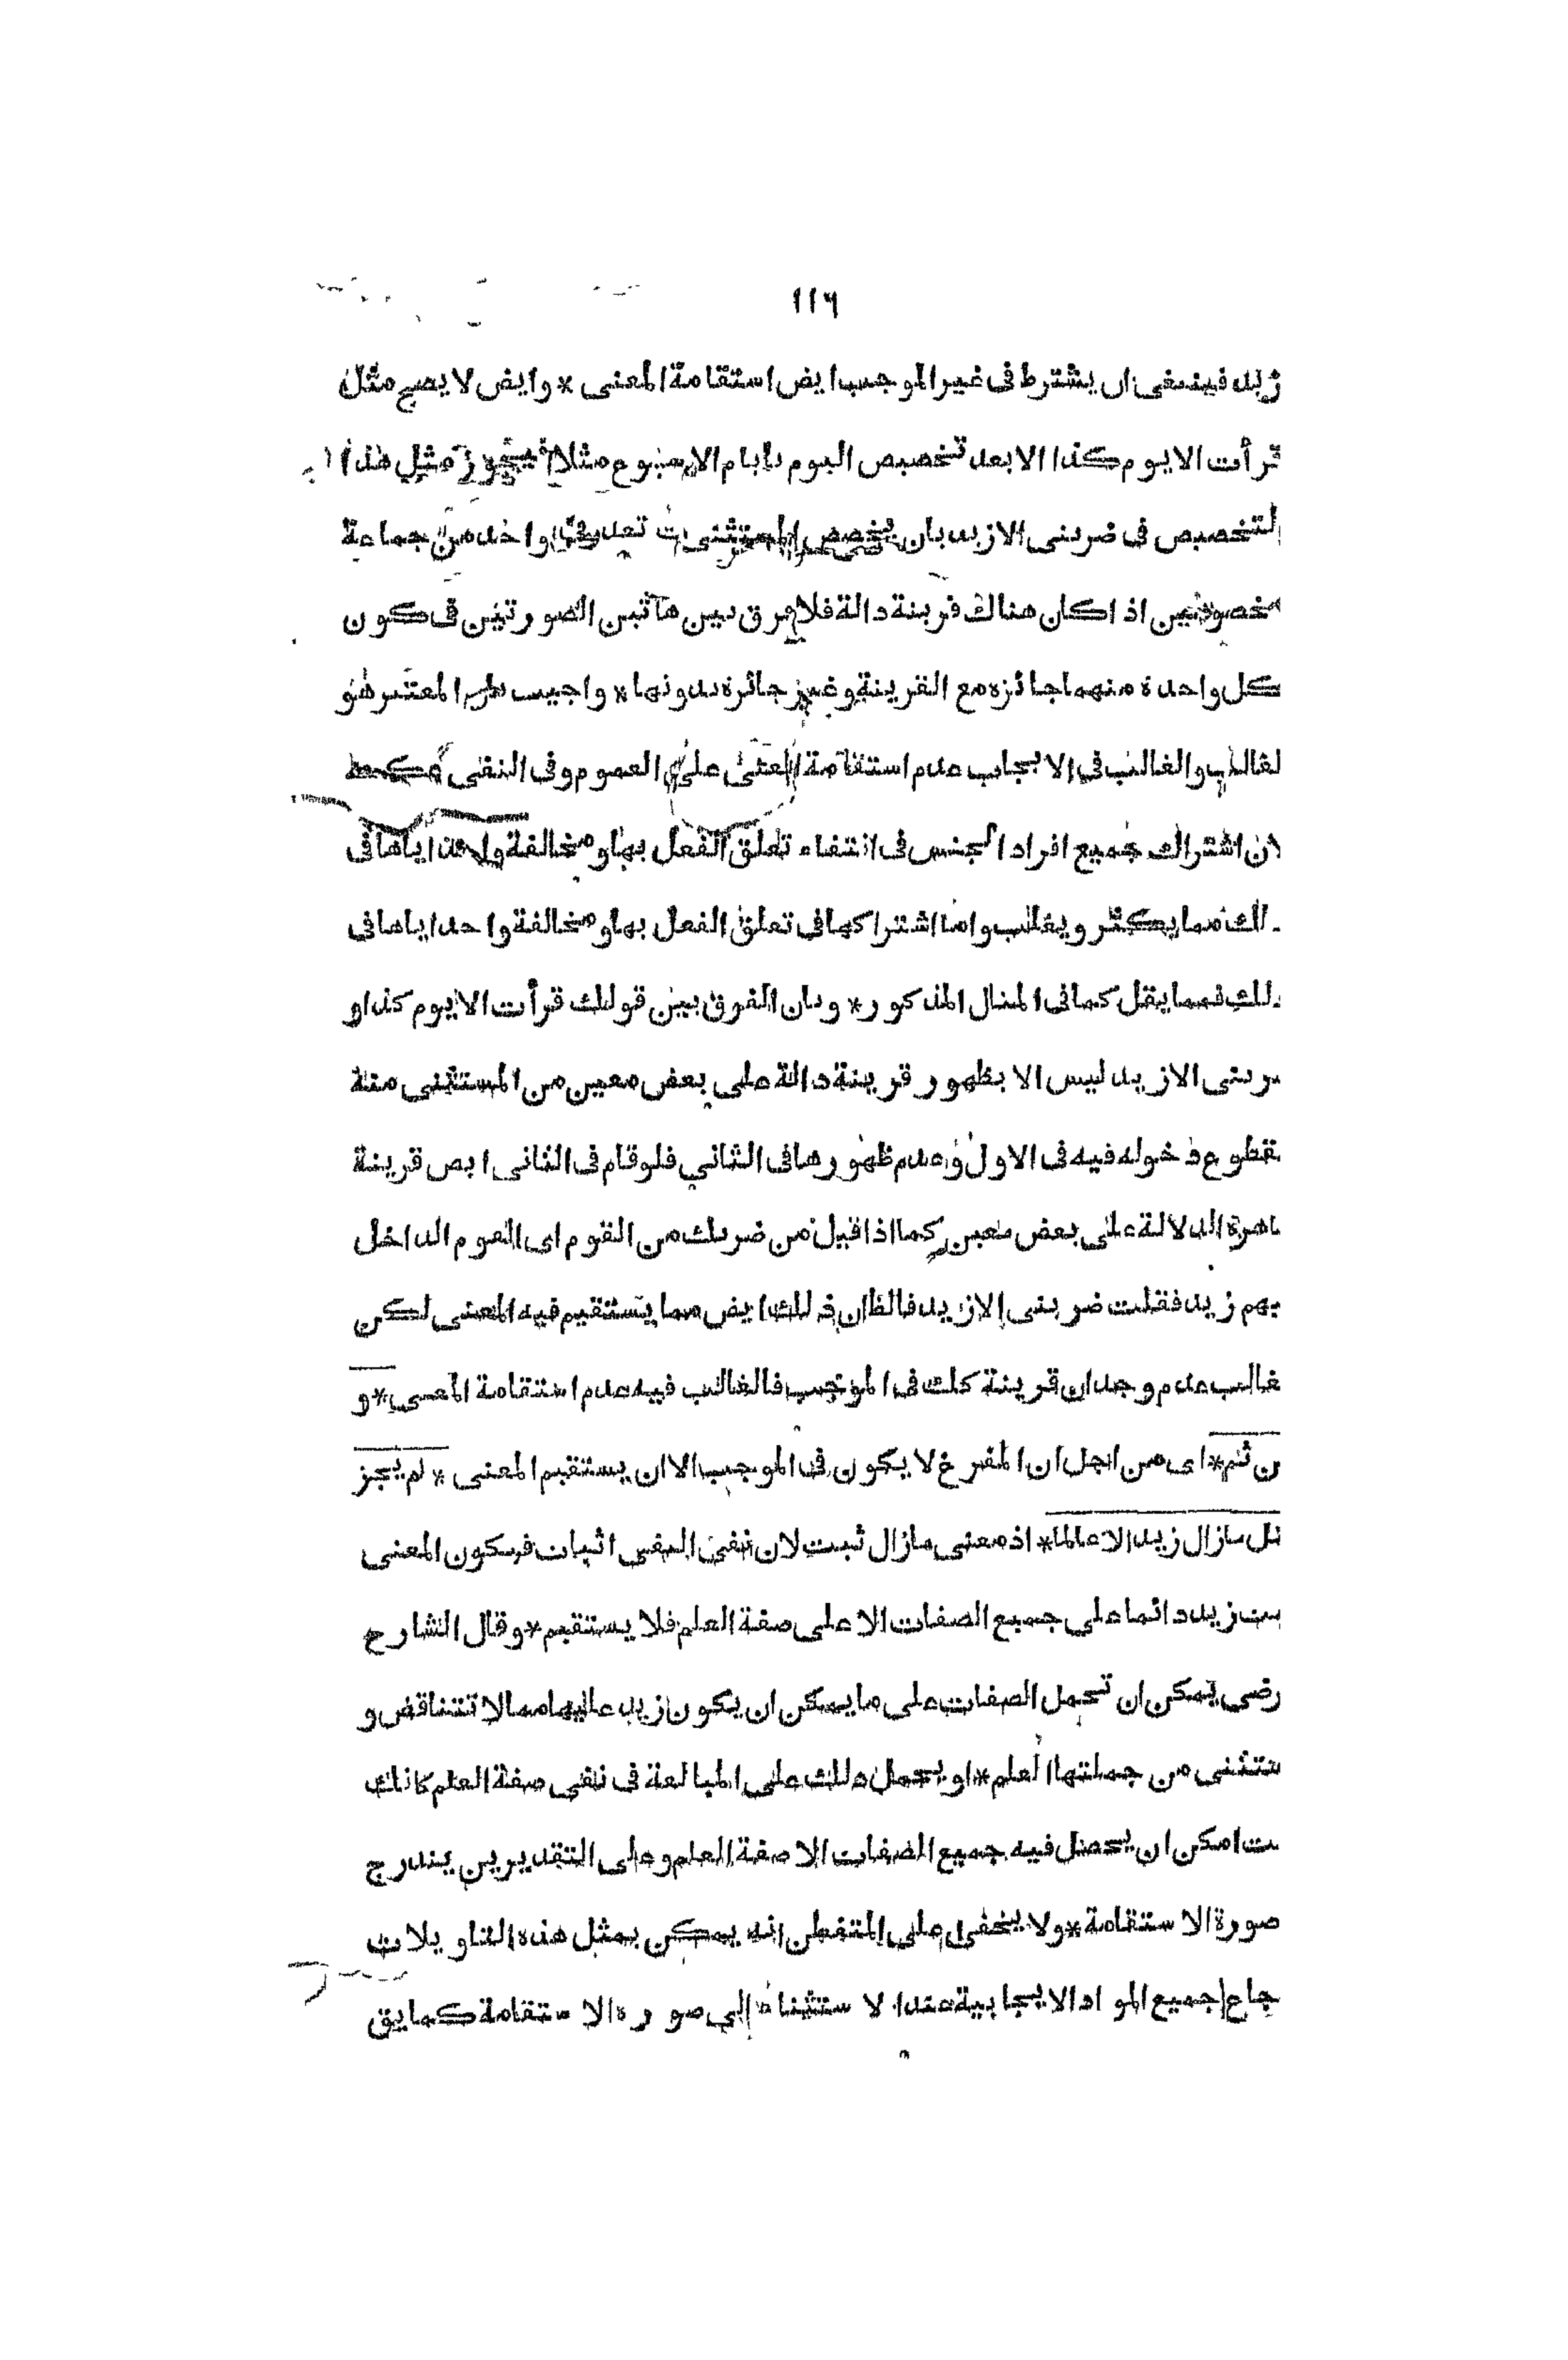 ١١٦
زيد فينبغى ان يشترط فى غير الموجب ايض استقامة المعنى * وايض لا يصح مثل
قرأت الا يوم كذا الا بعد تخصيص اليوم بايام الاسبوع مثلا فيجوز مثل هذا
التخصيص فى ضربنى الا زيد بان يخصص المستثنى واحد من جماعة
مخصوصين اذا كان هناك قرينة دالة فلا فرق بين هاتين الصورتين فى كون
كل واحدة منهما جائزه مع القرينة وغير جائزه بدونها * واجيب المعتبر هو
لغالب والغالب فى الايجاب عدم استقامة المعنى على العموم وفى النفى
لان اشتراك جميع افراد الجنس فى انتفاء تعلق الفعل بها ومخالفة واحد اياها فى
لك مما يكثر ويغلب واما اشتراكها فى تعلق الفعل بها ومخالفة واحد اياها فى
لك فمما يقل كما فى المثال المذكور * وبان الفرق بين قولك قرأت الا يوم كذا و
ضربنى الا زيد ليس الا بظهور قرينة دالة على بعض معين من المستثنى منه
قطوع دخوله فيه فى الاول وعدم ظهورها فى الثاني فلو قام فى الثانى ايض قرينة
اهرة الدلالة على بعض معين كما اذا قيل من ضربك من القوم اى القوم الداخل
يهم زيد فقلت ضربنى الا زيد فالظ ان ذلك ايض مما يستقيم فيه المعنى لكن
غالب عدم وجدان قرينة كلك فى الموجب فالغالب فيه عدم استقامة المعنى * و
ن ثم * اى من اجل ان المفرغ لا يكون فى الموجب الا ان يستقيم المعنى * لم يجز
ثل مازال زيد الا عالما * اذ معنى مازال ثبت لان نفى النفى اثبات فيكون المعنى
بت زيد دائما على جميع الصفات الا على صفة العلم فلا يستقيم * وقال الشارح
رضى يمكن ان تحمل الصفات على ما يمكن ان يكون زيد عليها مما لا تتناقض و
ستثنى من جملتها العلم * او يحمل ذلك على المبالغة فى نفى صفة العلم كانك
ت امكن ان يحصل فيه جميع الصفات الا صفة العلم وعلى التقديرين يندرج
صورة الاستقامة * ولا يخفى على المتفطن انه يمكن بمثل هذه التاويلات
جاع جميع المواد الايجابية عند الاستثناء الى صوره الاستقامة كما يق